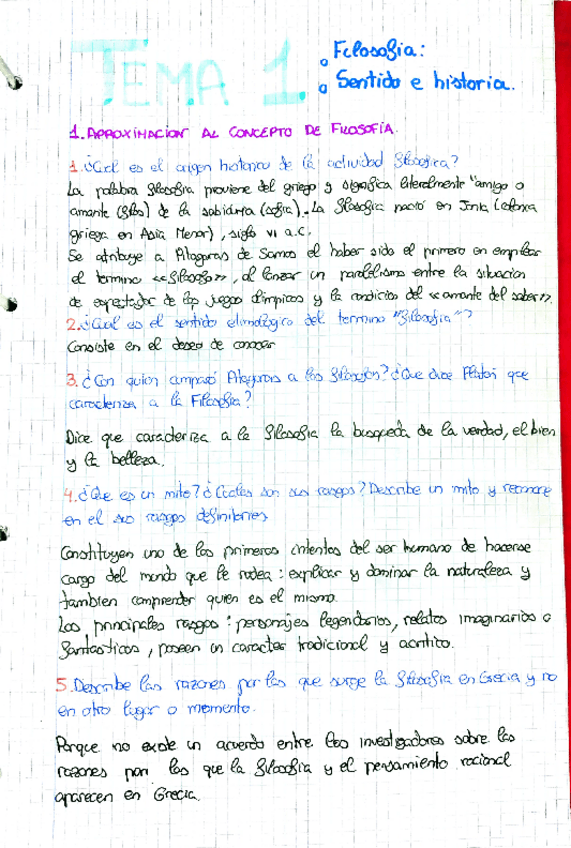 TEMA 1.
Filosofia:
Sentido e historia.
1. APROXIMACION AL CONCEPTO DE FILOSOFÍA.
1. ¿Cual es el origen historico de la actividad filosofica?
La palabra filosofia proviene del griego y significa literalmente "amigo o
amante (filos) de la sabiduria (sofia). La filosofia nació en Jonia (colonia
griega en Asia Menor), siglo VI a.C.
Se atribuye a Pitagoras de Samos el haber sido el primero en emplear
el termino «filosofo», al lanzar un paralelismo entre la situacion
de espectador de los juegos olimpicos y la condicion del «amante del saber».
2. ¿Cual es el sentido etimologico del termino "filosofia"?
Consiste en el deseo de conocer
3. ¿Con quien comparó Pitagoras a los filosofos? ¿Que dice Platon que
caracteriza a la Filosofia?
Dice que caracteriza a la filosofia la busqueda de la verdad, el bien
y la belleza.
4. ¿Que es un mito? ¿Cuales son sus rasgos? Describe un mito y reconoce
en el sus rasgos definitorios
Constituyen uno de los primeros intentos del ser humano de hacerse
cargo del mundo que le rodea: explicar y dominar la naturaleza y
tambien comprender quien es el mismo.
Los principales rasgos: personajes legendarios, relatos imaginarios o
fantasticos, poseen un caracter tradicional y acritico.
5. Describe las razones por las que surge la filosofia en Grecia y no
en otro lugar o momento.
Porque no existe un acuerdo entre los investigadores sobre las
razones por las que la filosofia y el pensamiento racional
aparecen en Grecia.